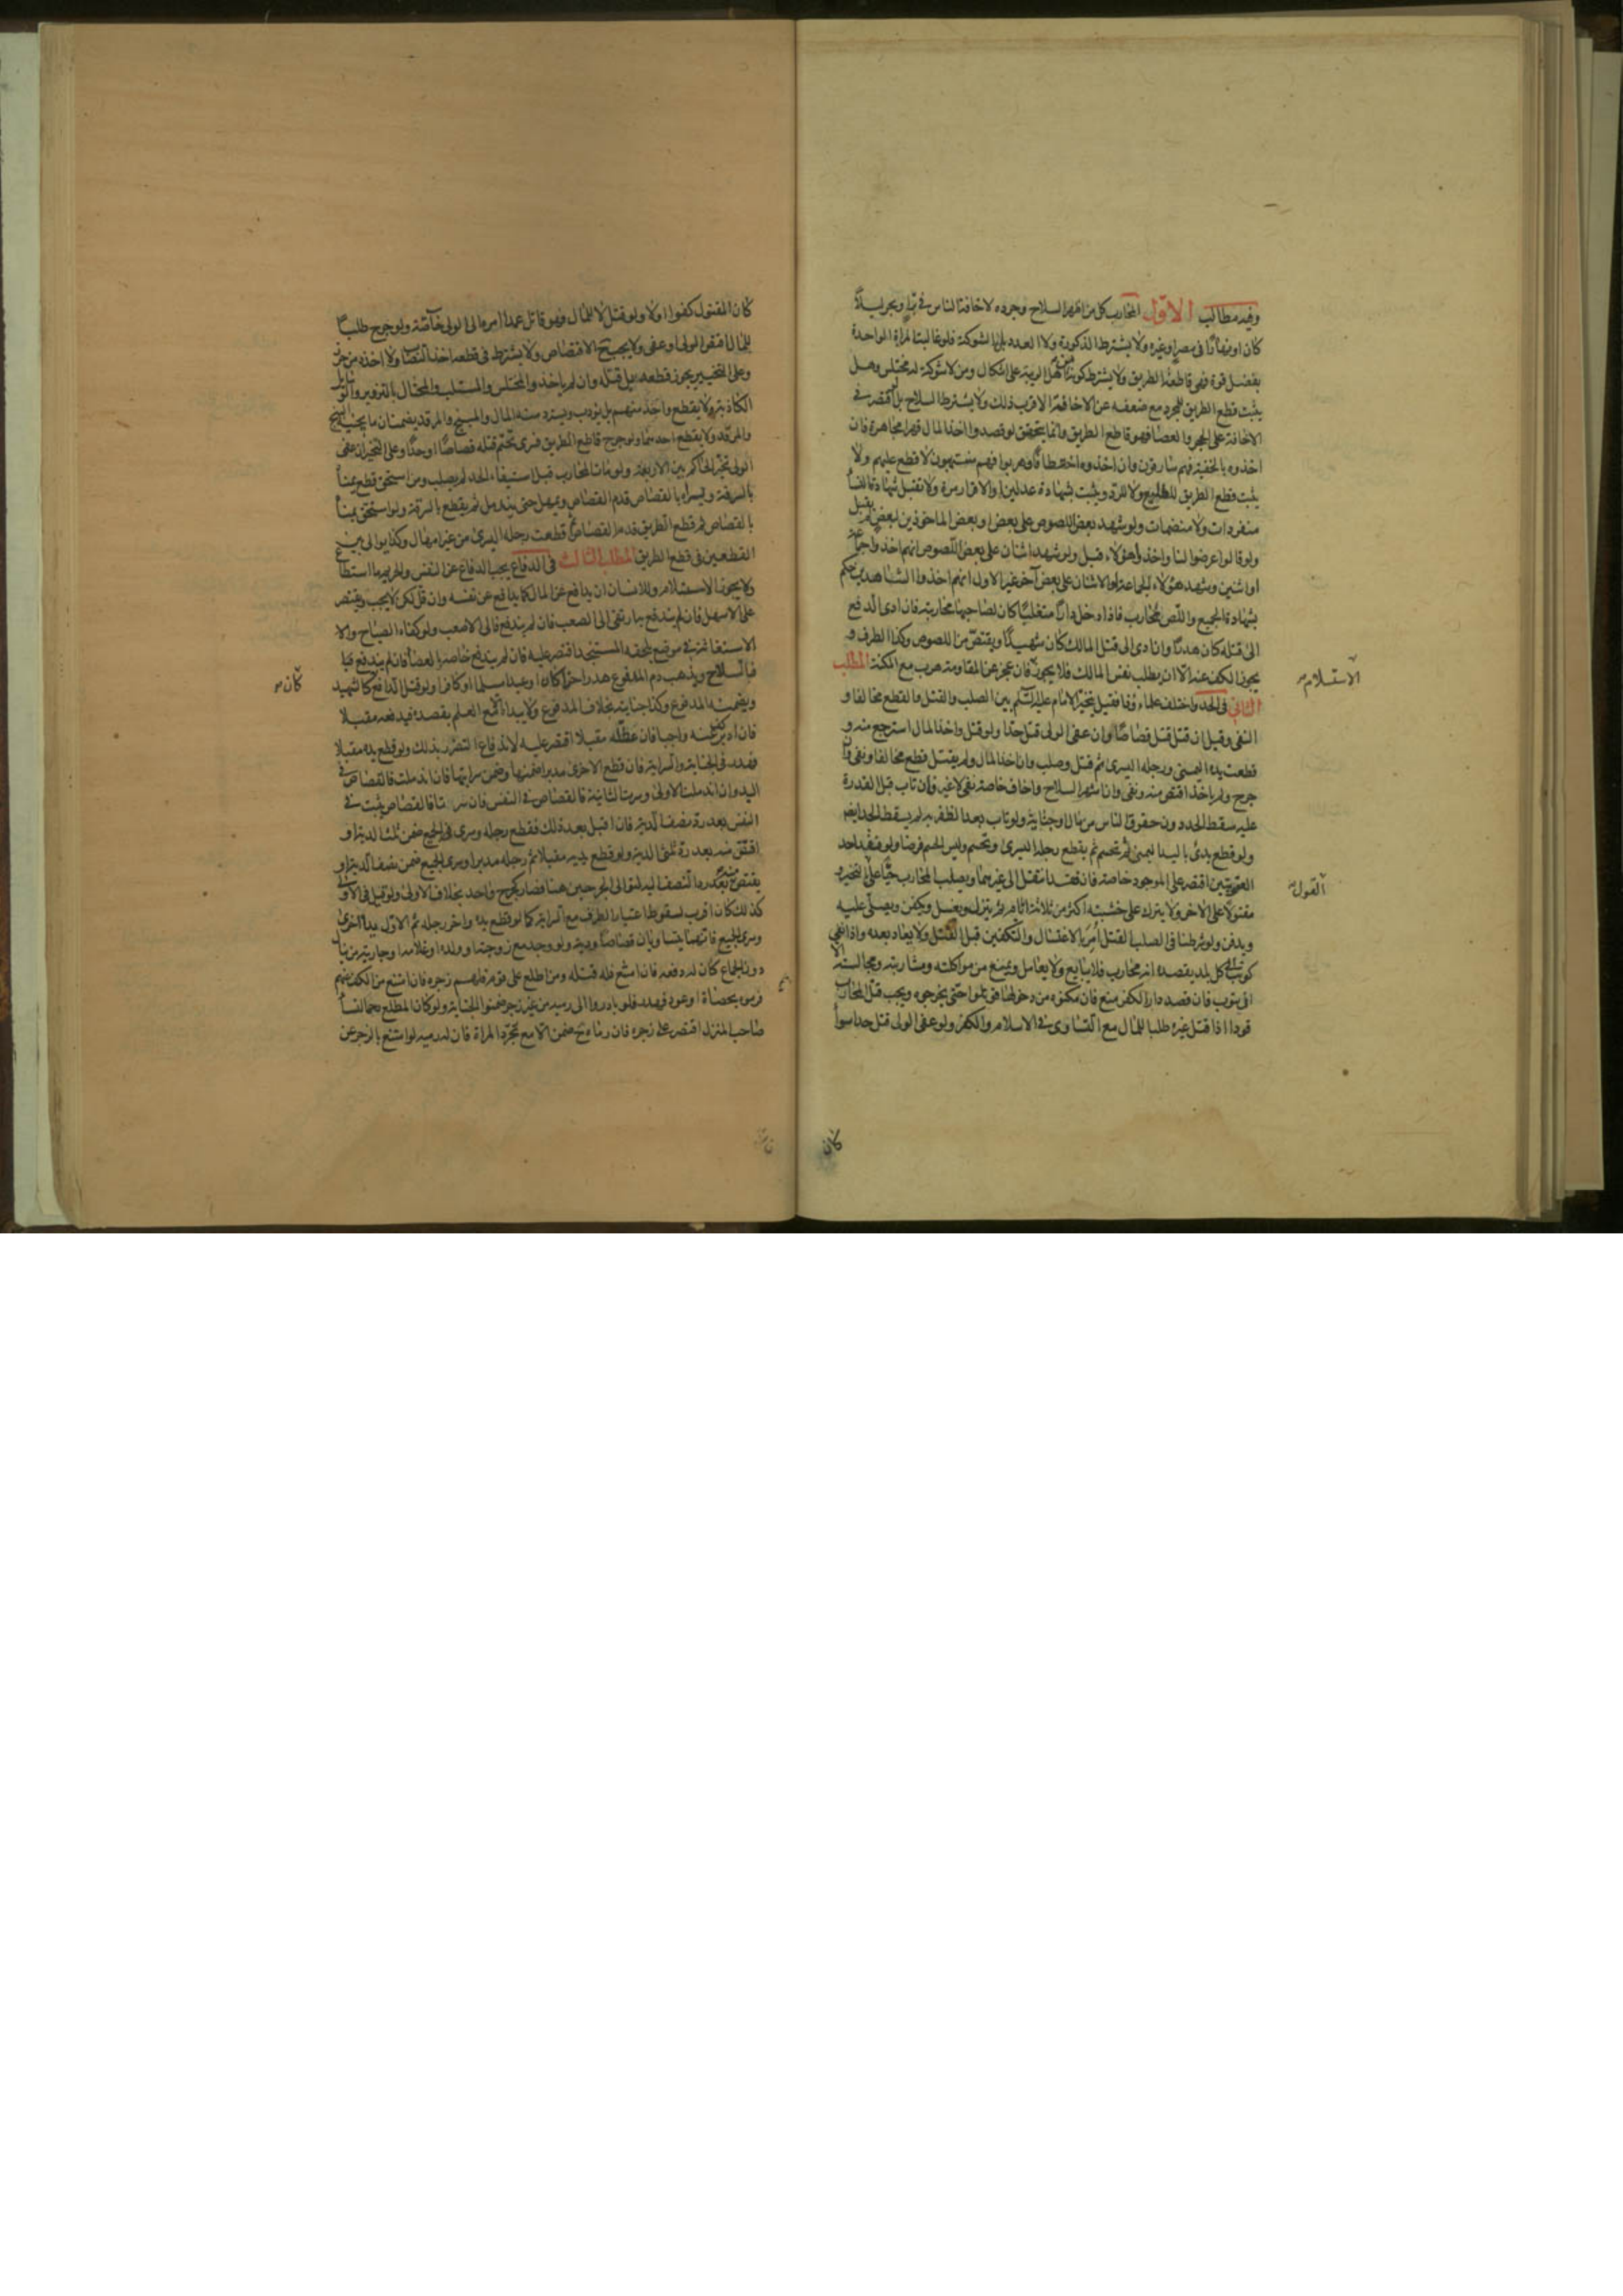 وفيه مطالب الاول المحارب كل من اظهر السلاح وجرده لاخافة الناس في بر او بحر ليلا
كان او نهارا في مصر او غيره ولا يشترط الذكورة ولا العدد بل الشوكة فلو غالبت المراة الواحدة
بفضل قوة فهي قاطعة الطريق ولا يشترط كونه من اهل الريبة على اشكال ومن لا شوكة له مختلس وهل
يثبت قطع الطريق للمجرد مع ضعفه عن الاخافة الاقرب ذلك ولا يشترط السلاح بل لو اقتصر في
الاخافة على الحجر والعصا فهو قاطع الطريق وانما يتحقق لو قصدوا اخذ المال قهرا مجاهرة فان
اخذوه بالخفية فهم سارقون وان اخذوه اختطافا وهربوا فهم منتهبون لا قطع عليهم ولا
يثبت قطع الطريق للطليع ولا للردء ويثبت بشهادة عدلين او الاقرار مرة ولا تقبل شهادة النساء
منفردات ولا منضمات ولو شهد بعض اللصوص على بعض او بعض الماخوذين لبعض لم يقبل
ولو قالوا عرضوا لنا واخذوا هؤلاء قبل ولو شهد اثنان على بعض اللصوص انهم اخذوا جماعة
او اثنين وشهد هؤلاء الجماعة او الاثنان على بعض آخر غير الاول انهم اخذوا الشاهدين حكم
بشهادة الجميع واللص محارب فاذا دخل دارا متغلبا كان لصاحبها محاربته فان ادى الدفع
الى قتله كان هدرا وان ادى الى قتل المالك كان شهيدا ويقتص من اللصوص وكذا الطرف و
يجوز الكف عنه الا ان يطلب نفس المالك فلا يجوز فان عجز عن المقاومة هرب مع المكنة المطلب
الثاني في الحد واختلف علماؤنا فقيل يتخير الامام عليه السلم بين الصلب والقتل والقطع مخالفا و
النفي وقيل ان قتل قتل قصاصا او ان عفى الولي قتل حدا ولو قتل واخذ المال استرجع منه و
قطعت يده اليمنى ورجله اليسرى ثم قتل وصلب وان اخذ المال ولم يقتل قطع مخالفا ونفي وان
جرح ولم ياخذ اقتص منه ونفي وان شهر السلاح واخاف خاصة نفي لا غير وان تاب قبل القدرة
عليه سقط الحد دون حقوق الناس من مال او جناية ولو تاب بعد الظفر به لم يسقط الحد ايضا
ولو قطع بدئ باليد اليمنى ثم تحسم ثم يقطع رجله اليسرى وتحسم وليس الحسم فرضا ولو فقد احد
العضوين اقتصر على الموجود خاصة فان فقدا انتقل الى غيرهما ويصلب المحارب حيا على التخيير و
مقتولا على الاخر ولا يترك على خشبته اكثر من ثلاثة ايام ثم ينزل ويغسل ويكفن ويصلى عليه
ويدفن ولو شرطنا في الصلب القتل امر بالاغتسال والتكفين قبل القتل ولا يعاد بعده واذا نفي
كوتب الى كل بلد يقصده انه محارب فلا يبايع ولا يعامل ويمنع من مواكلته ومشاربته ومجالسته الا
ان يتوب فان قصد دار الكفر منع فان مكنوه من دخولها قوتلوا حتى يخرجوه ويجب قتل المحارب
قودا اذا قتل غيره طلبا للمال مع التساوي في الاسلام والكفر ولو عفى الولي قتل حدا سواء
الاستسلام
القول
كان
كان المقتول كفوا اولا ولو قتل لا للمال فهو قاتل عمدا امره الى الولي خاصة ولو جرح طلبا
للمال اقتص الولي او عفى ولا يجب الاقتصاص ولا يشترط في قطعه اخذ النصاب ولا اخذه من حرز
وعلى التخيير يجوز قطعه بل قتله وان لم ياخذ والمختلس والمستلب والمحتال بالتزوير والرسائل
الكاذبة لا يقطع واحد منهم بل يؤدب ويسترد منه المال والمبنج والمرقد يضمنان ما يجنيه البنج
والمرقد ولا يقطع احدهما ولو جرح قاطع الطريق فسرى تحتم قتله قصاصا او حدا وعلى التخيير ان عفى
الولي تخير الحاكم بين الاربعة ولو مات المحارب قبل استيفاء الحد لم يصلب ومن استحق قطع يمناه
بالسرقة ويسراه بالقصاص قدم القصاص ويمهل حتى يندمل ثم يقطع بالسرقة ولو استحق يمناه
بالقصاص ثم قطع الطريق قدم القصاص ثم قطعت رجله اليسرى من غير امهال وكذا يوالي بين
القطعين في قطع الطريق المطلب الثالث في الدفاع يجب الدفاع عن النفس والحريم ما استطاع
ولا يجوز الاستسلام وللانسان ان يدافع عن المال كما يدافع عن نفسه وان قل لكن لا يجب ويقتصر
على الاسهل فان لم يندفع به ارتقى الى الصعب فان لم يندفع فالى الاصعب ولو كفاه الصياح والا
الاستغاثة في موضع يلحقه المستنجد اقتصر عليه فان لم يندفع خاصمه بالعصا فان لم يندفع بها
فبالسلاح ويذهب دم المدفوع هدرا حرا كان او عبدا مسلما او كافرا ولو قتل الدافع كالشهيد
ويضمنه المدفوع وكذا جنايته بخلاف المدفوع ولا يبداه الا مع العلم بقصده فيدفعه مقبلا
فان ادبر كف عنه واجبا فان عطله مقبلا اقتصر عليه لاندفاع الضرر بذلك ولو قطع يده مقبلا
فهدر في الجناية والسراية فان قطع الاخرى مدبرا ضمنها وضمن سرايتها فان اندملت فالقصاص في
اليد وان اندملت الاولى وسرت الثانية فالقصاص في النفس فان سرتا فالقصاص يثبت في
النفس بعد رد نصف الدية فان اقبل بعد ذلك فقطع رجله وسرى الجميع ضمن ثلث الدية او
اقتص منه بعد رد ثلثي الدية ولو قطع يديه مقبلا ثم رجله مدبرا وسرى الجميع ضمن نصف الدية او
يقتص منه بعد رد النصف ليد لتوالي الجرحين هنا فصار كجرح واحد بخلاف الاولى ولو قيل في الاولى
كذلك كان اقرب لسقوط اعتبار الطرف مع السراية كما لو قطع يده واخر رجله ثم الاول يده الاخرى
وسرى الجميع فانهما يتساويان قصاصا ودية ولو وجد مع زوجته او ولده او غلامه او جاريته من ينال
دون الجماع كان له دفعه فان امتنع فله قتله ومن اطلع على قوم فلهم زجره فان امتنع من الكف عنهم
فرموه بحصاة او عود فهدر فلو بادروا الى رميه من غير زجر ضمنوا الجناية ولو كان المطلع رحما لنساء
صاحب المنزل اقتصر على زجره فان رماه ح ضمن الا مع تجرد المراة فان له رميه لو امتنع بالزجر عن
كان